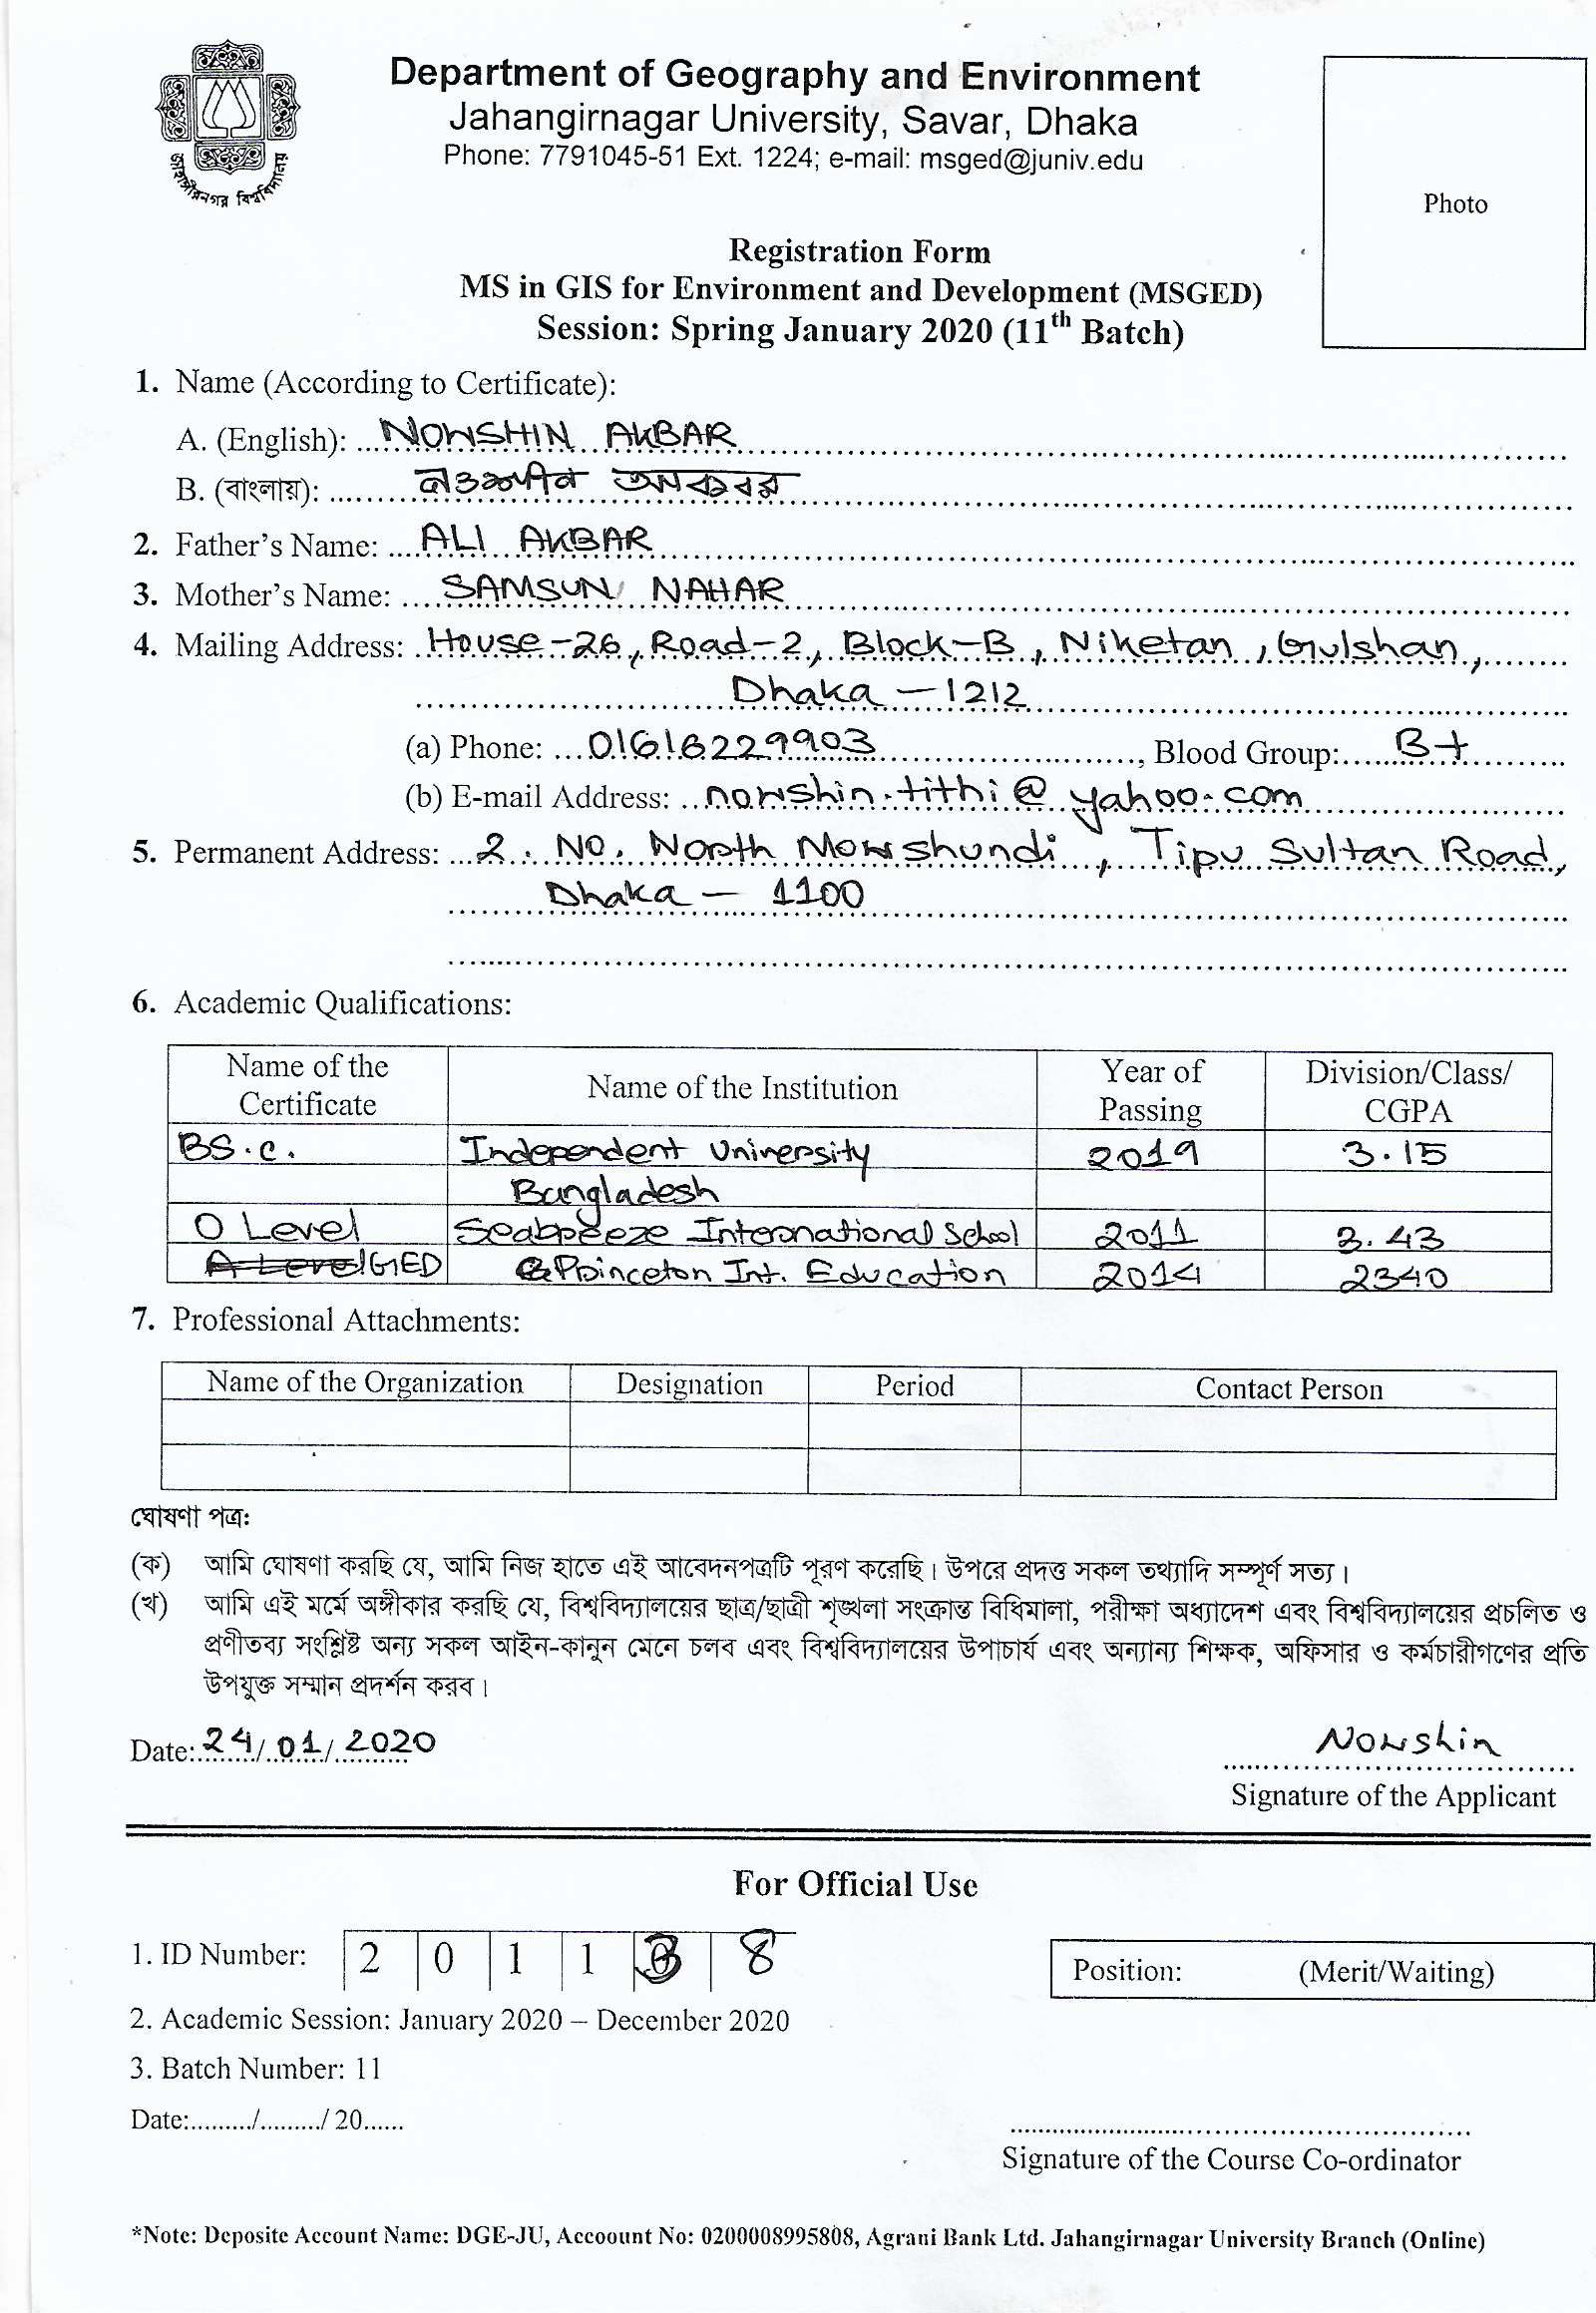 জাহাঙ্গীরনগর বিশ্ববিদ্যালয়
Department of Geography and Environment
Jahangirnagar University, Savar, Dhaka
Phone: 7791045-51 Ext. 1224; e-mail: msged@juniv.edu
Photo
Registration Form
MS in GIS for Environment and Development (MSGED)
Session: Spring January 2020 (11th Batch)
1. Name (According to Certificate):
A. (English): NOWSHIN AKBAR
B. (বাংলায়): নওশীন আকবর
2. Father's Name: ALI AKBAR
3. Mother's Name: SAMSUN NAHAR
4. Mailing Address: House-26, Road-2, Block-B, Niketan, Gulshan,
Dhaka - 1212
(a) Phone: 01616229903, Blood Group: B+
(b) E-mail Address: nowshin.tithi@yahoo.com
5. Permanent Address: 2. No. North Mowshundi, Tipu Sultan Road,
Dhaka - 1100
6. Academic Qualifications:
Name of the Certificate Name of the Institution Year of Passing Division/Class/ CGPA
BS.c. Independent University 2019 3.15
Bangladesh
O Level Seabreeze International School 2011 3.43
A Level GED Princeton Int. Education 2014 2340
7. Professional Attachments:
Name of the Organization Designation Period Contact Person
ঘোষণা পত্র:
(ক) আমি ঘোষণা করছি যে, আমি নিজ হাতে এই আবেদনপত্রটি পূরণ করেছি। উপরে প্রদত্ত সকল তথ্যাদি সম্পূর্ণ সত্য।
(খ) আমি এই মর্মে অঙ্গীকার করছি যে, বিশ্ববিদ্যালয়ের ছাত্র/ছাত্রী শৃঙ্খলা সংক্রান্ত বিধিমালা, পরীক্ষা অধ্যাদেশ এবং বিশ্ববিদ্যালয়ের প্রচলিত ও
প্রণীতব্য সংশ্লিষ্ট অন্য সকল আইন-কানুন মেনে চলব এবং বিশ্ববিদ্যালয়ের উপাচার্য এবং অন্যান্য শিক্ষক, অফিসার ও কর্মচারীগণের প্রতি
উপযুক্ত সম্মান প্রদর্শন করব।
Date: 24/01/2020
Nowshin
Signature of the Applicant
For Official Use
1. ID Number: 2 0 1 1 3 8
Position: (Merit/Waiting)
2. Academic Session: January 2020 – December 2020
3. Batch Number: 11
Date:........./........./ 20......
Signature of the Course Co-ordinator
*Note: Deposite Account Name: DGE-JU, Accoount No: 0200008995808, Agrani Bank Ltd. Jahangirnagar University Branch (Online)